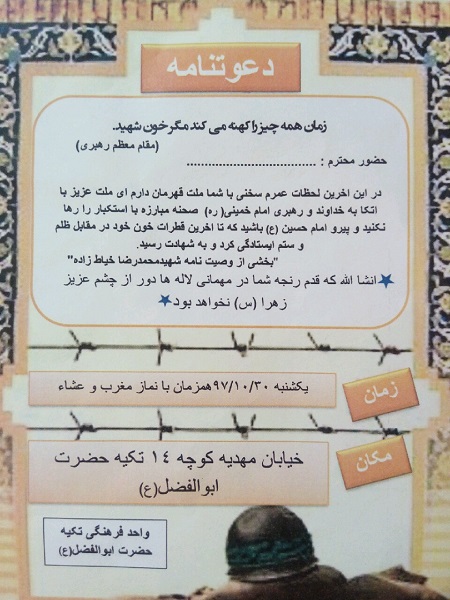 دعوتنامه
زمان همه چیز را کهنه می کند مگر خون شهید.
(مقام معظم رهبری)
حضور محترم : .....................................
در این اخرین لحظات عمرم سخنی با شما ملت قهرمان دارم ای ملت عزیز با
اتکا به خداوند و رهبری امام خمینی( ره) صحنه مبارزه با استکبار را رها
نکنید و پیرو امام حسین (ع) باشید که تا اخرین قطرات خون خود در مقابل ظلم
و ستم ایستادگی کرد و به شهادت رسید.
"بخشی از وصیت نامه شهیدمحمدرضا خیاط زاده"
انشا الله که قدم رنجه شما در مهمانی لاله ها دور از چشم عزیز
زهرا (س) نخواهد بود
زمان
یکشنبه ۹۷/۱۰/۳۰همزمان با نماز مغرب و عشاء
مکان
خیابان مهدیه کوچه ۱۴ تکیه حضرت
ابوالفضل(ع)
واحد فرهنگی تکیه
حضرت ابوالفضل(ع)